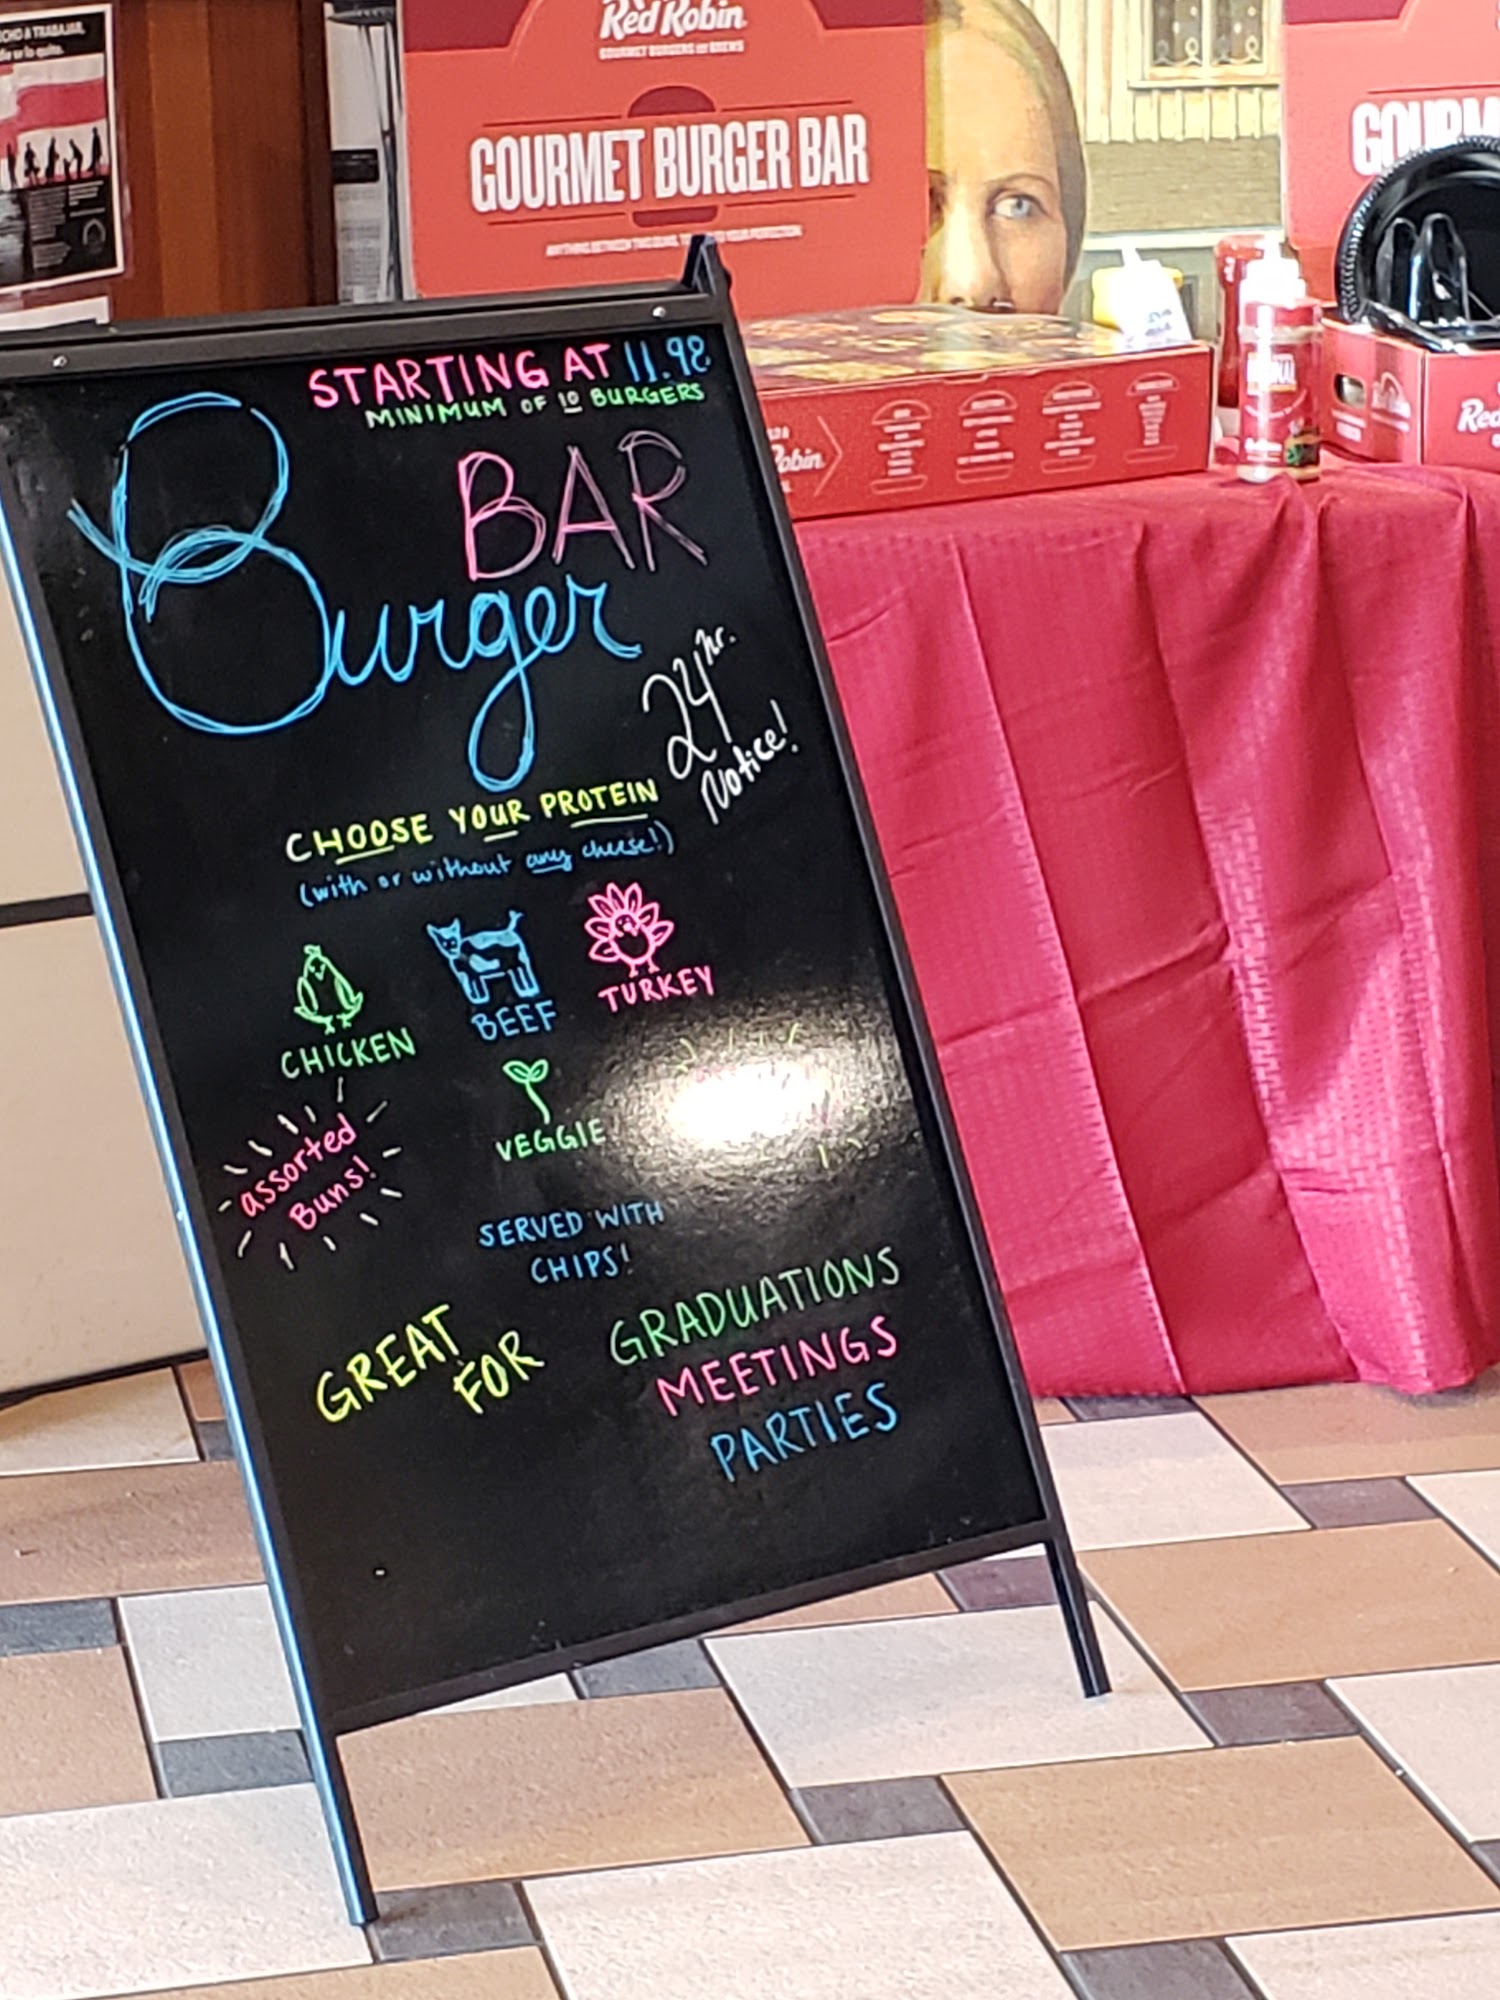 CHO A TRABAJAR,
Red Robin
GOURMET BURGERS AND BREWS
GOURMET BURGER BAR
STARTING AT 11.98
MINIMUM OF 10 BURGERS
BAR
Burger
24 hr.
Notice!
CHOOSE YOUR PROTEIN
(with or without any cheese!)
CHICKEN
BEEF
TURKEY
VEGGIE
assorted
Buns!
SERVED WITH
CHIPS!
GREAT
FOR
GRADUATIONS
MEETINGS
PARTIES
obin
GOURM
Red